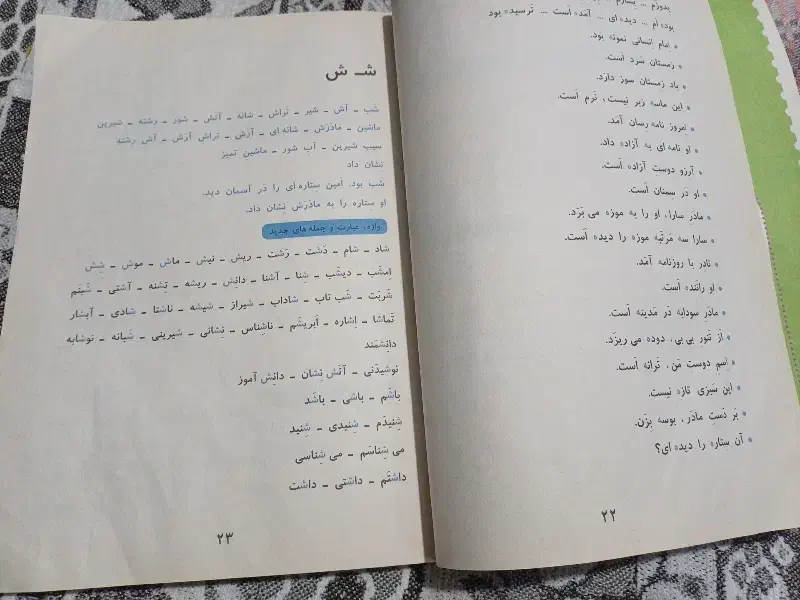 بدوزم ... بسازم ...
بوده ام ... دیده ای ... آمده است ... ترسیده بود
امام انسانی نمونه بود.
زمستان سرد است.
باد زمستان سوز دارد.
این ماسه زبر نیست، نرم است.
امروز نامه رسان آمد.
او نامه ای به آزاده داد.
آرزو دوست آزاده است.
او در سمنان است.
مادر سارا، او را به موزه می برد.
سارا سه مرتبه موزه را دیده است.
نادر با روزنامه آمد.
او راننده است.
مادر سودابه در مدینه است.
از تنور بی بی، دوده می ریزد.
اسم دوست من، ترانه است.
این سبزی تازه نیست.
بر دست مادر، بوسه بزن.
آن ستاره را دیده ای؟
۲۲
شـ ش
شب ـ آش ـ شیر ـ تراش ـ شانه ـ آتش ـ شور ـ رشته ـ شیرین
ماشین ـ مادرش ـ شانه ای ـ آرش ـ تراش آرش ـ آش رشته
سیب شیرین ـ آب شور ـ ماشین تمیز
نشان داد
شب بود. امین ستاره ای را در آسمان دید.
او ستاره را به مادرش نشان داد.
واژه، عبارت و جمله های جدید
شاد ـ شام ـ دشت ـ رشت ـ ریش ـ نیش ـ ماش ـ موش ـ شش
امشب ـ دیشب ـ شنا ـ آشنا ـ دانش ـ ریشه ـ تشنه ـ آشتی ـ شبنم
شربت ـ شب تاب ـ شاداب ـ شیراز ـ شیشه ـ ناشتا ـ شادی ـ آبشار
تماشا ـ اشاره ـ ابریشم ـ ناشناس ـ نشانی ـ شیرینی ـ شبانه ـ نوشابه
دانشمند
نوشیدنی ـ آتش نشان ـ دانش آموز
باشم ـ باشی ـ باشد
شنیدم ـ شنیدی ـ شنید
می شناسم ـ می شناسی
داشتم ـ داشتی ـ داشت
۲۳